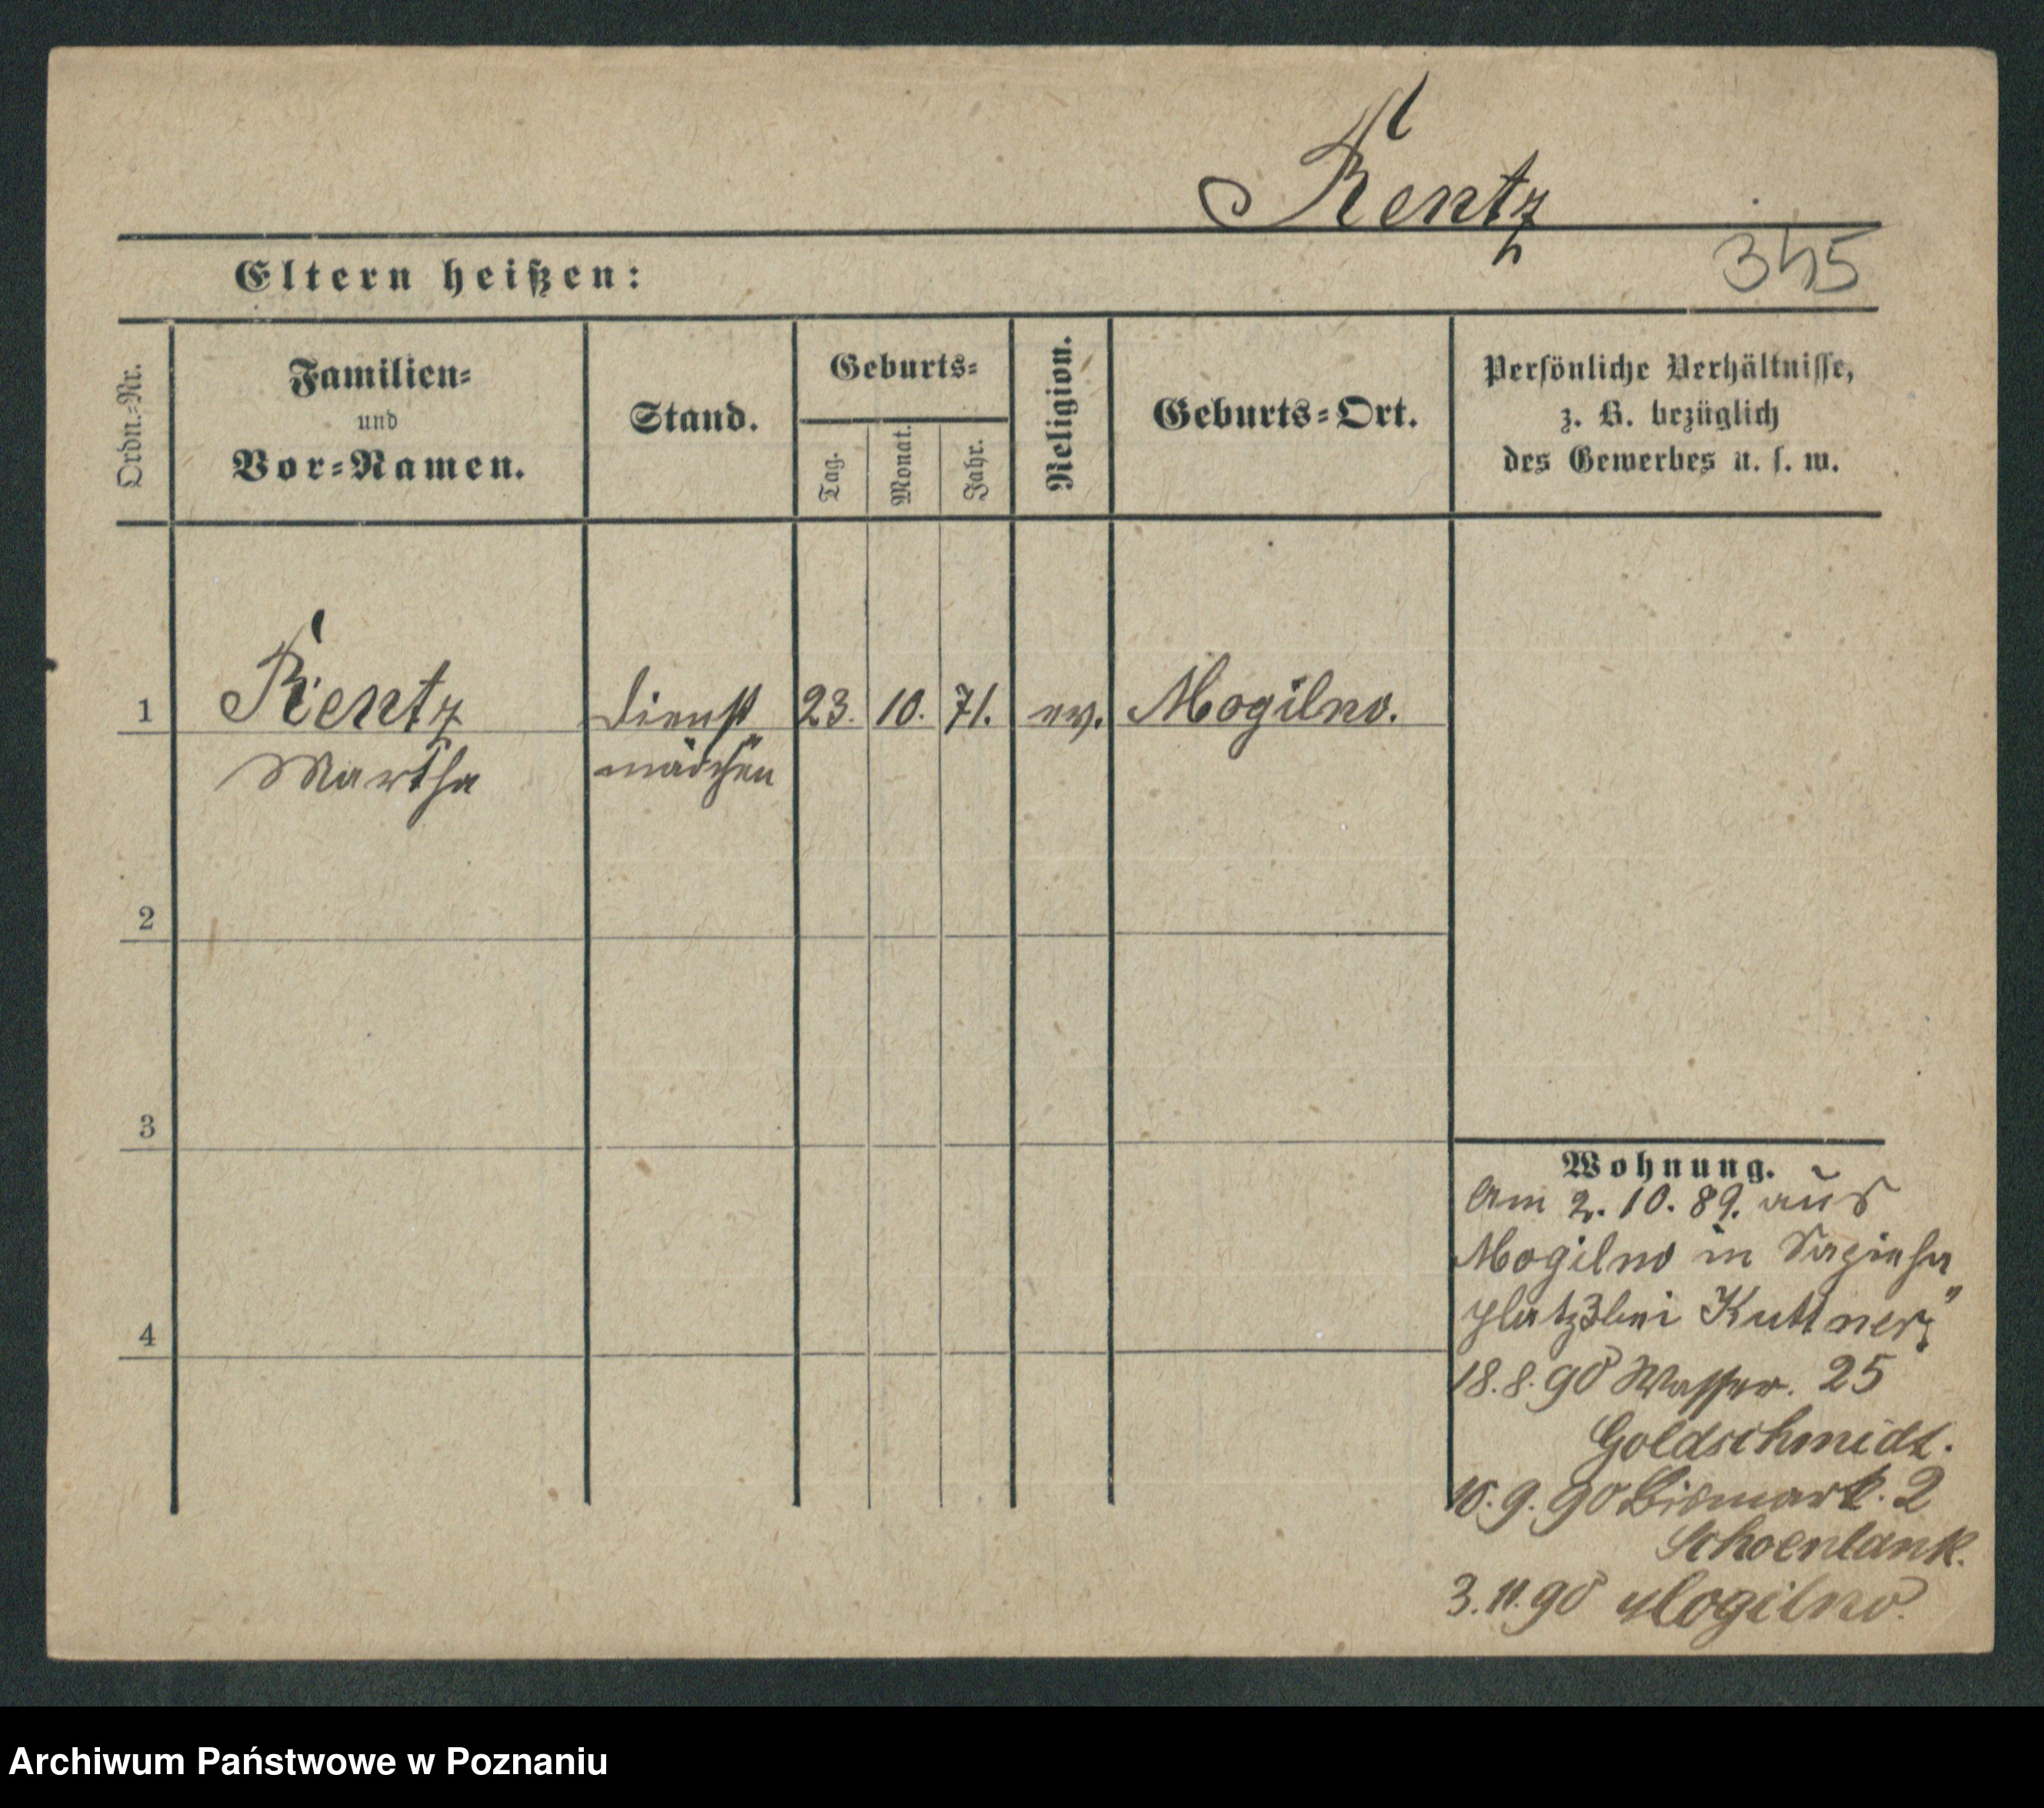 Rentz
345
Eltern heißen:
Ordn.=Nr.
Familien=
und
Vor=Namen.
Stand.
Geburts=
Tag.
Monat.
Jahr.
Religion.
Geburts=Ort.
Persönliche Verhältnisse,
z. B. bezüglich
des Gewerbes u. s. w.
1 Rentz Dienst 23. 10. 71. ev. Mogilno.
Martha mädchen
2
3
4
Wohnung.
Am 2. 10. 89. aus
Mogilno in Sapieha
platz 3 bei Kuttner
18. 8. 90 Wasser. 25
Goldschmidt.
10. 9. 90 Bismark. 2
Schoenlank.
3. 11. 90 Mogilno.
Archiwum Państwowe w Poznaniu